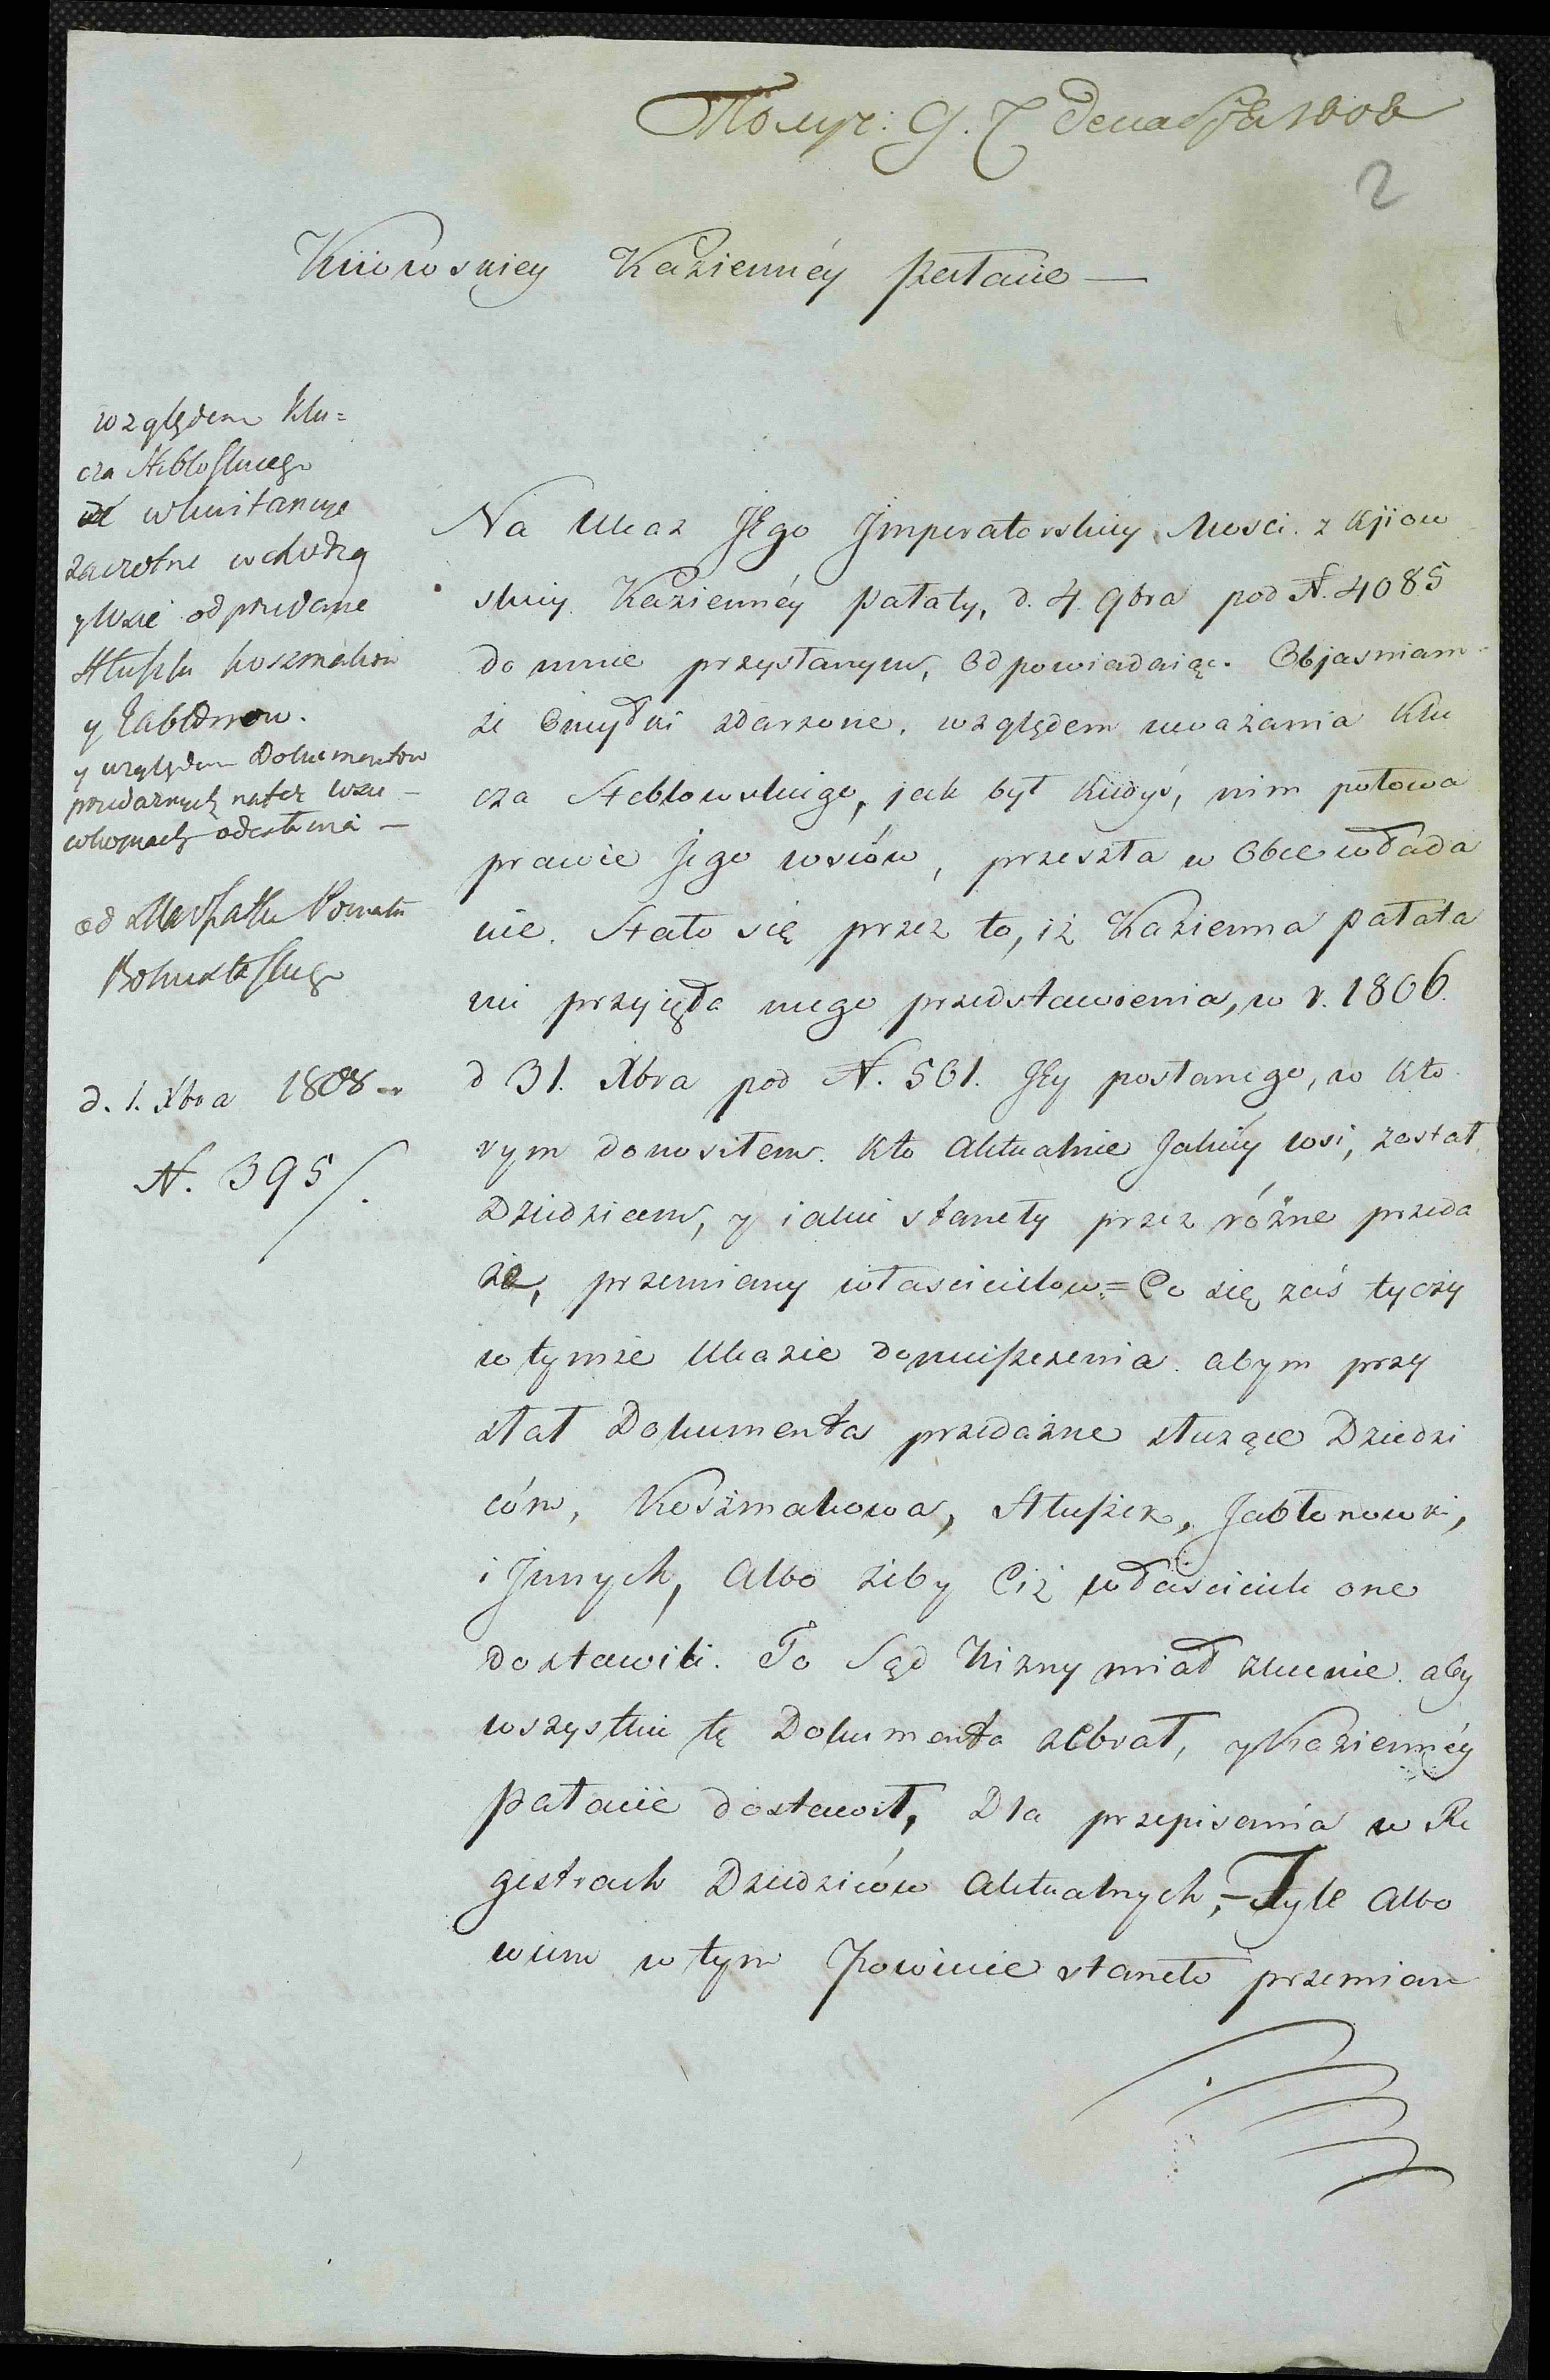 Получ: 9. декабря 1808
2
Kiiowskiey Kazienney Pałacie —
względem Klu=
cza Steblowskiego
że w kwitancye
zawrotne wchodzą
y wsie odprzedane
Słuszki Koszmakow
y Jabłonow.
y względem Dokumentow
przedażnych na też wsie —
odesłania —
od Marszałka Powiatu
Bohusławskiego
d. 1. Xbra 1808
N. 395/.
Na Ukaz JEgo Jmperatorskiey Mosci. z Kjiow
skiey Kazienney Pałaty, d. 4. 9bra pod N. 4085
do mnie przysłanym, Odpowiadaiąc. Objasniam
że Omyłki zdarzone, względem uważania Klu
cza Steblowskiego, jak był kiedyś, nim połowa
prawie Jego wsiów, przeszła w Obce włada
nie. Stało się przez to, iż Kazienna Pałata
nie przyięła mego przedstawienia, w r. 1806.
d 31. Xbra pod N. 561. JEy posłanego, w Kto
rym donosiłem. Kto Aktualnie Jakiey wsi, został
Dziedzicem, y iakie staneły przez różne przeda
że, przemiany właścicielow = Co się zaś tyczy
w tymże Ukazie domieszczenia. abym przy
słał Dokumenta przedażne służące Dziedzi
cóm, Koszmakowa, Słuszek, Jabłonowki,
i Jnnych, Albo żeby Ciż właściciele one
dostawili. To Sąd Niżny miał zlecenie. aby
wszystkie tę Dokumenta zebrał, y Kazienney
Pałacie dostawił, Dla przepisania w Re
gestrach Dziedziców Aktualnych, — Tyle Albo
wiem w tym Powiecie staneło przemian